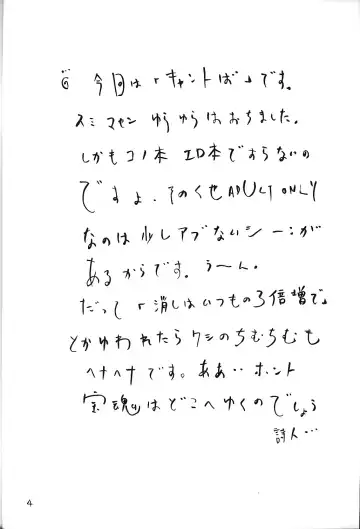 今回は「キャントば」です。
スミマセンゆうゆうはおちました。
しかもコノ本エロ本ですらないの
ですよ、そのくせADULT ONLY
なのは少しアブないシーンが
あるからです。うーん。
だって「消しはいつもの3倍増で。
とかゆわれたらワシのちむちむも
ヘナヘナです。ああ‥ホント
宝魂はどこへゆくのでしょう
詩人…
4